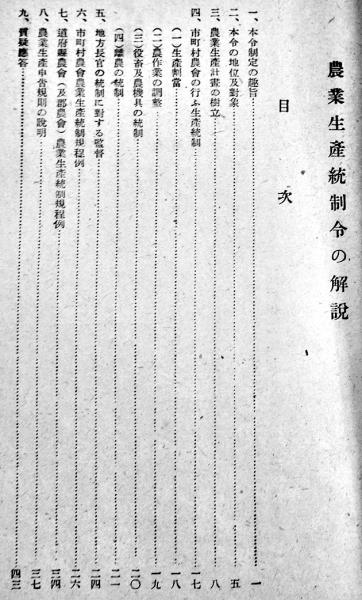 農業生產統制令の解說
目次
一、本令制定の趣旨……一
二、本令の地位及對象……五
三、農業生產計畫の樹立……八
四、市町村農會の行ふ生產統制……一七
(一)生產割當……一八
(二)農作業の調整……一九
(三)役畜及農機具の統制……二〇
(四)離農の統制……二一
五、地方長官の統制に對する監督……二四
六、市町村農會農業生產統制規程例……二六
七、道府縣農會(及郡農會)農業生產統制規程例……三四
八、農業生產申告規則の說明……三七
九、質疑應答……四三